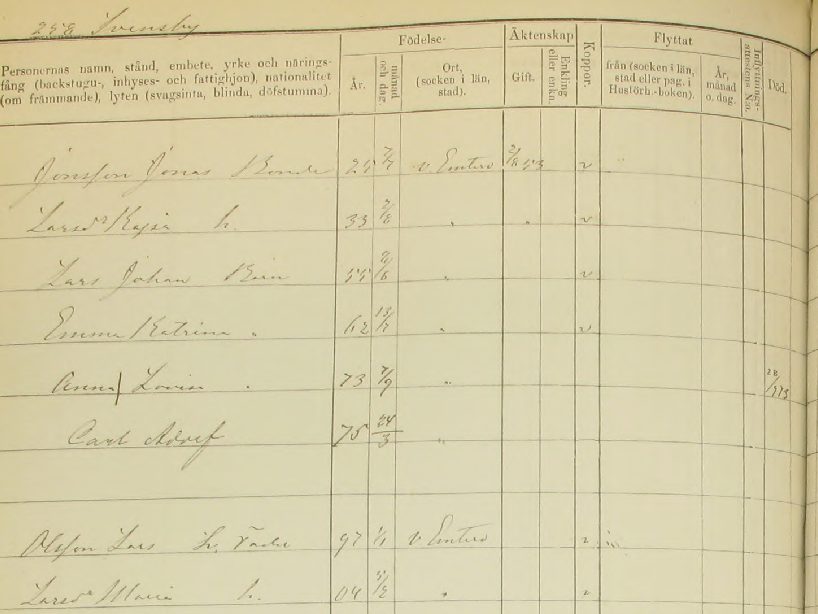 258 Svensby
Personernas namn, stånd, embete, yrke och närings-
fång (backstugu-, inhyses- och fattighjon), nationalitet
(om främmande), lyten (svagsinta, blinda, döfstumma).
Födelse-
År.
månad och dag.
Ort, (socken i län, stad).
Äktenskap
Gift.
Enkling eller enka.
Koppor.
Flyttat
från (socken i län, stad eller pag. i Husförh.-boken).
År, månad o. dag.
Inflyttnings-
Död.
Jonsson Jonas Bonde 25 v. Emterv 53 v
Larsdr Kajsa h. 33 2/8 " " v
Lars Johan Barn 55 " v
Emma Katrina " 62 " v
Anna Lovisa " 73 7/9 "
Carl Adolf 75 24/3 "
Olsson Lars 97 1/1 v Emterv v
Larsdr Maria h. 04 " v